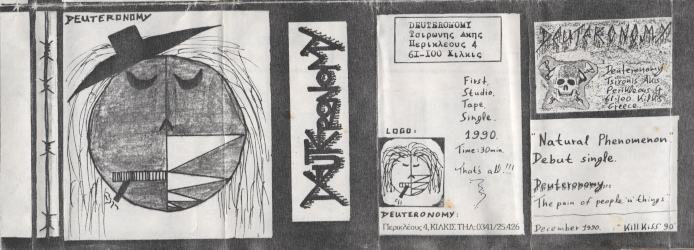 DEUTERONOMY
DEUTERONOMY
DEUTERONOMY
Τσιρωνης Ακης
Περικλεους 4
61-100 Κιλκις
First
Studio
Tape
Single.
1990.
Time: 30min.
That's all!!!
LOGO:
DEUTERONOMY:
Περικλέους 4, ΚΙΛΚΙΣ ΤΗΛ: 0341/25.426
DEUTERONOMY
Deuteronomy
Tsironis Akis
Perikleous 4
61-100 Kilkis
Greece.
"Natural Phenomenon"
Debut single.
Deuteronomy
"The pain of people 'n' things"
December 1990.
"Kill Kiss 90"